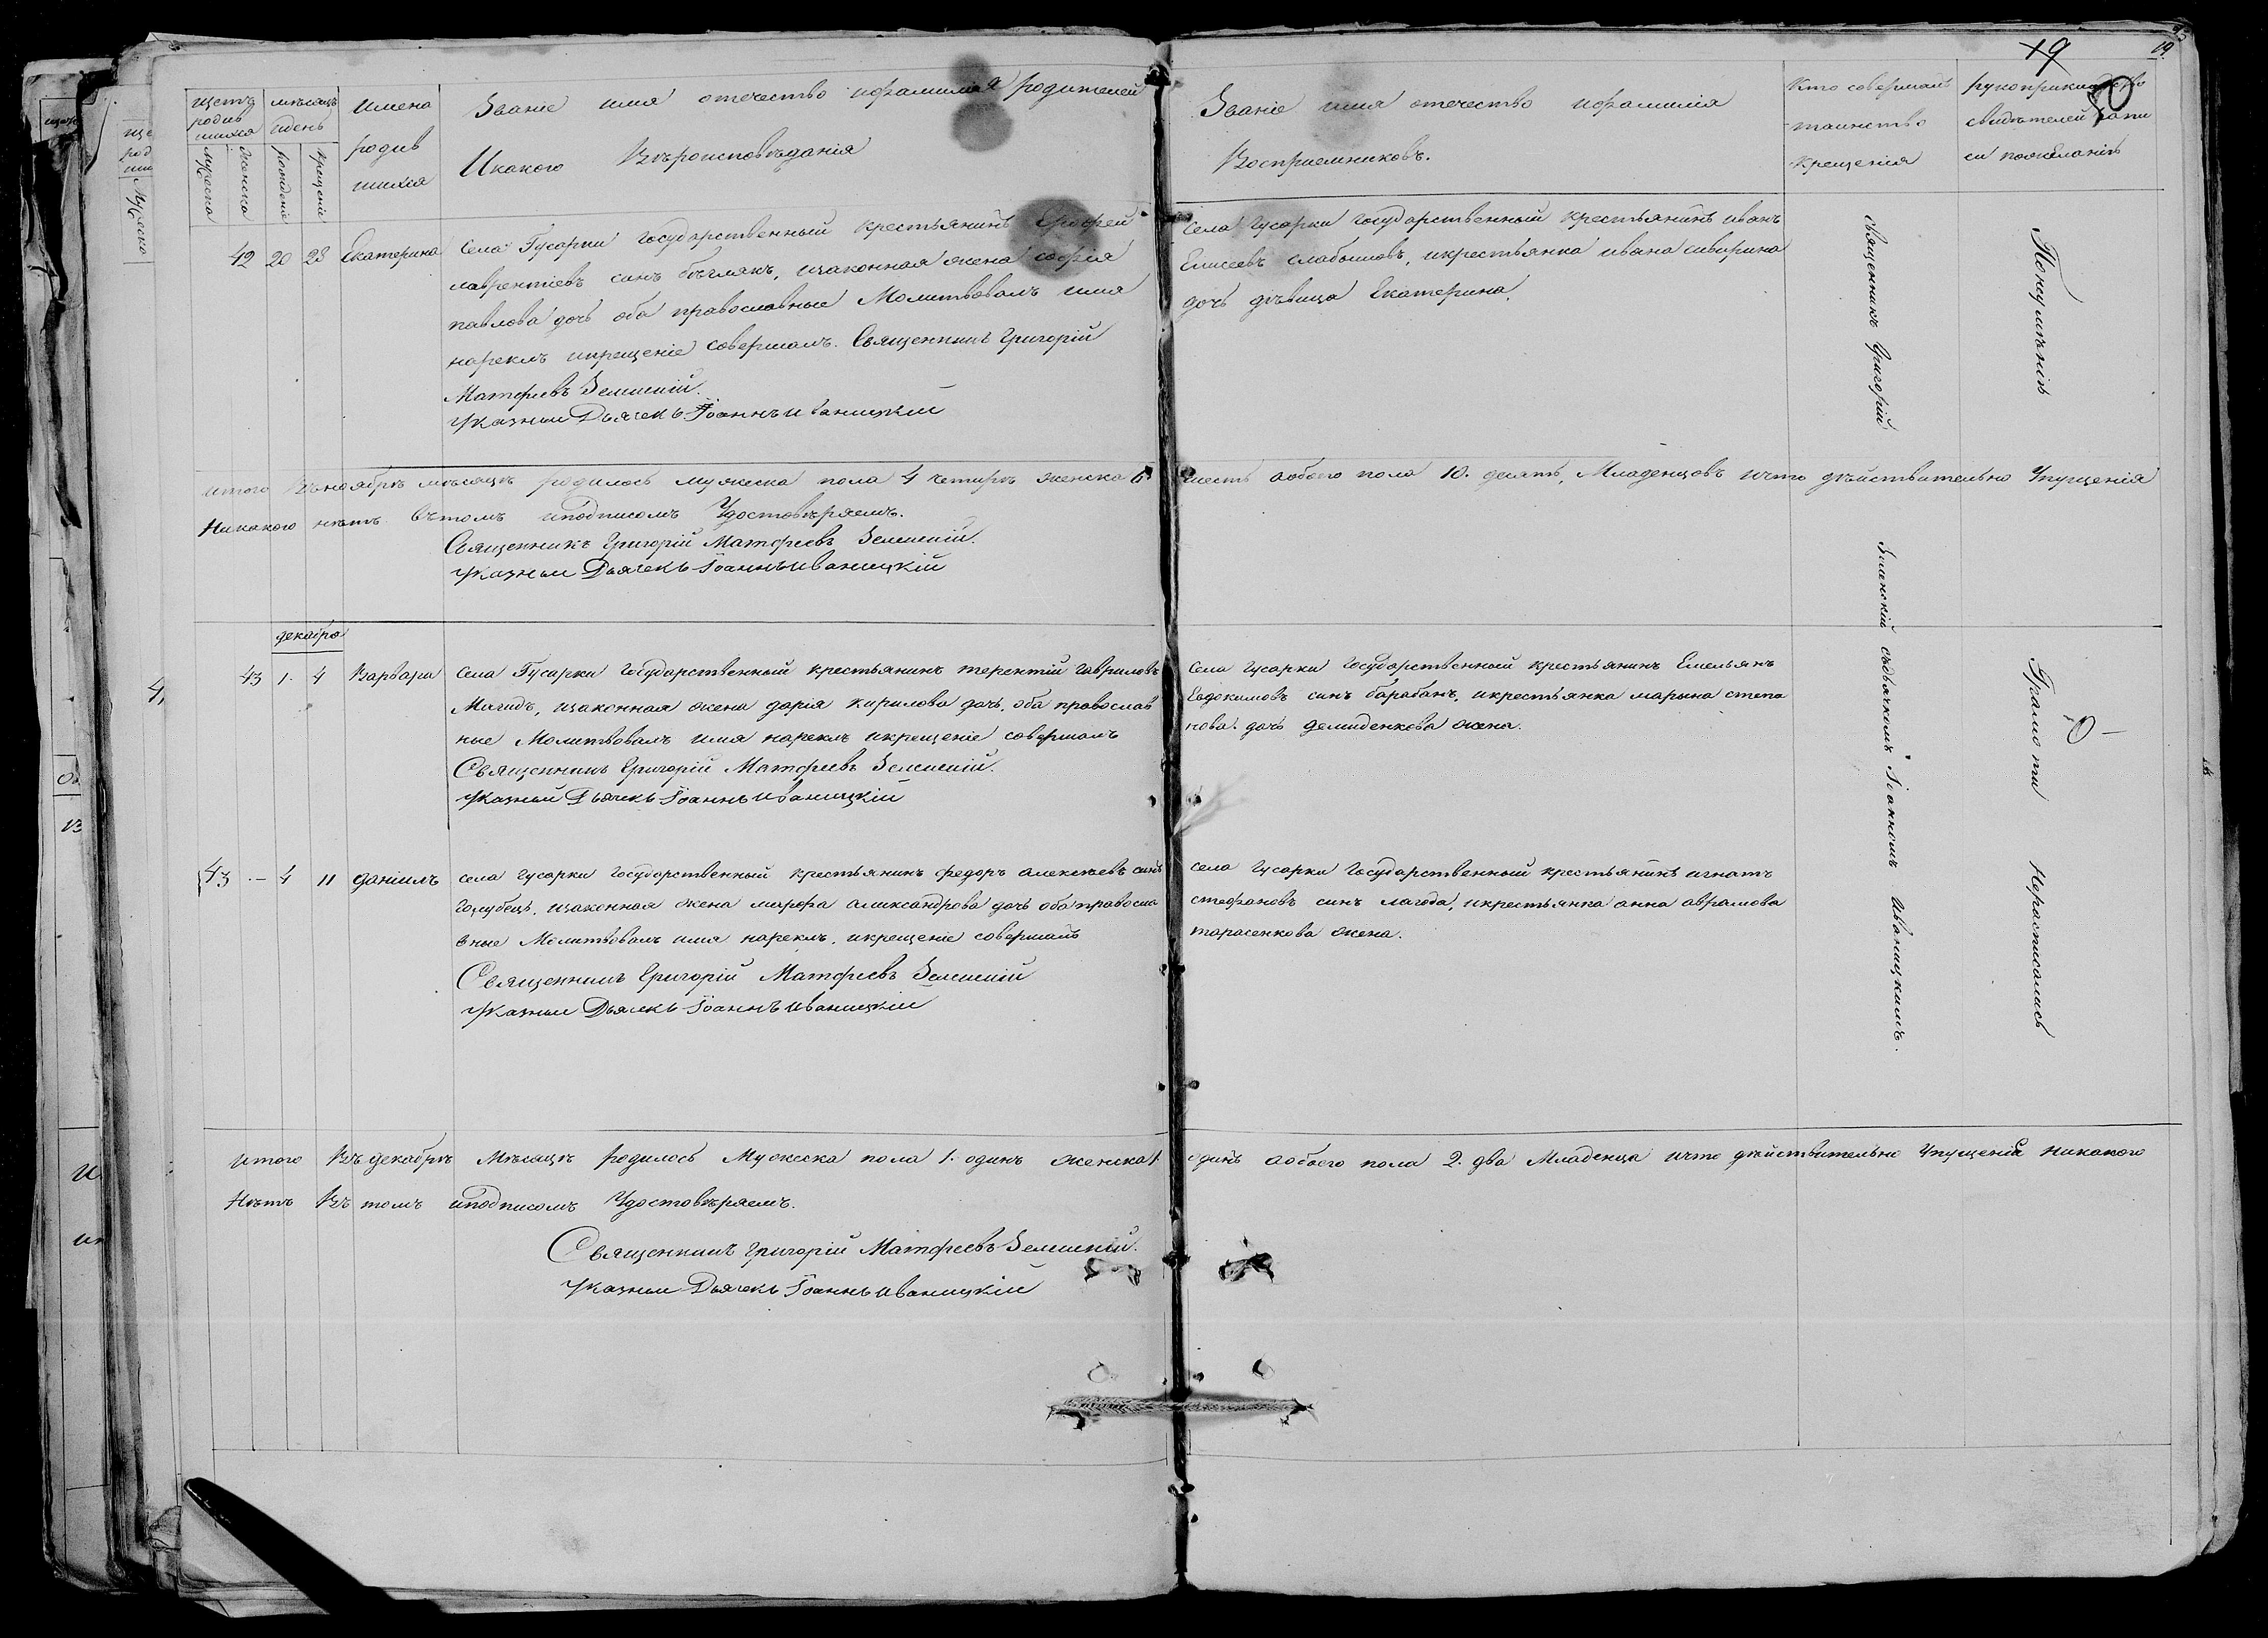 19
19
50
щетъ родив шихся
Мужеска
Женска
мѣсяцъ идень
рожденіе
крещеніе
имена родив шихся
Званіе имя отечество ифамилія родителей
Икакого Вѣроисповѣданія
Званіе имя отечество ифамилія
Воспріемниковъ.
Кто совершалъ таинство крещенія
рукоприкладство свидѣтелей запи си пожеланію
42 20 28 Екатерина
Села Гусарки Государственный крестьянинъ Ерофей
лаврентіевъ синъ бѣглякъ, изаконная жена софія
павлова дочь оба православные Молитвовалъ имя
нареклъ икрещеніе совершалъ. Священникъ Григорій
Матфеевъ Зеленскій.
Указный Дьячекъ Іоаннъ иваницкій
Села Гусарки Государственный крестьянинъ иванъ
Елисеевъ слабошовъ, икрестьянка ивана сивирина
дочь дѣвица Екатерина.
итого Въноябрѣ мѣсяцѣ родилось мужеска пола 4 четирѣ женска 6 шесть аобоего пола 10. десять, Младенцовъ ичто дѣйствительно Упущенія
Никакого нѣтъ вътомъ иподписомъ Удостовѣряемъ.
Священникъ Григорій Матфеевъ Зеленскій.
Указный Дьячекъ Іоаннъ иваницкій
декабря
43 1. 4 Варвара
Села Гусарки Государственный крестьянинъ терентій гавриловъ
Магидъ, изаконная жена дарія кирилова дочь, оба православ
ные Молитвовалъ имя нареклъ икрещеніе совершалъ
Священникъ Григорій Матфеевъ Зеленскій.
Указный Дьячекъ Іоаннъ иваницкій
Села Гусарки Государственный крестьянинъ Емельянъ
Евдокимовъ синъ барабанъ, икрестьянка марына степа
нова. дочь демиденкова жена.
43 - 4 11 даніилъ
села Гусарки Государственный крестьянинъ федоръ алексѣевъ синъ
Голубецъ, изаконная жена марфа александрова дочь оба правосла
вные Молитвовалъ имя нареклъ, икрещеніе совершалъ
Священникъ Григорій Матфеевъ Зеленскій
Указный Дьячекъ Іоаннъ иваницкій
села Гусарки Государственный крестьянинъ игнатъ
стефановъ синъ лагода, икрестьянка анна аврамова
тарасенкова жена.
Священникъ Григорій Зеленскій сдьячкомъ Іоанномъ Иваницкимъ.
Понеумѣнію Грамоти Нерасписались
итого Въ декабрѣ Мѣсяцѣ родилось Мужеска пола 1. одинъ женска 1 одинъ аобоего пола 2. два Младенца ичто дѣйствительно Упущенія никакого
Нѣтъ Въ томъ иподписомъ Удостовѣряемъ.
Священникъ Григорій Матфеевъ Зеленскій.
Указный Дьячекъ Іоаннъ иваницкій